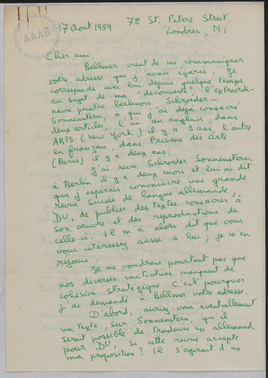 AAAB
17 Aout 1959
78 St. Peters Street
Londres, N1
Cher ami,
Bellmer vient de me communiquer
votre adresse que j'avais égarée. Je
corresponds avec lui depuis quelque temps
au sujet de ma "découverte", l'extraordi-
naire peintre berlinois Schroeder-
Sonnenstern, à qui j'ai déjà consacré
deux articles, l'un en anglais, dans
ARTS (New York) il y a 3 ans, l'autre
en français, dans Présence des Arts
(Paris) il y a deux ans.
J'ai revu Schroeder Sonnenstern
à Berlin il y a deux mois et lui ai dit
que j'espérais convaincre une grande
revue suisse de langue allemande,
DU, de publier des textes consacrés à
son oeuvre et des reproductions de
celle-ci. Il m'a alors dit que vous
vous intéressez aussi à lui; je m'en
réjouis.
Je ne voudrais pourtant pas que
nos diverses initiatives manquent de
cohésion stratégique. C'est pourquoi
j'ai demandé à Bellmer votre adresse.
D'abord, auriez vous éventuellement
un texte, sur Sonnenstern, qu'il
serait possible de traduire en allemand
pour DU, si cette revue accepte
ma proposition? Il s'agirait d'un